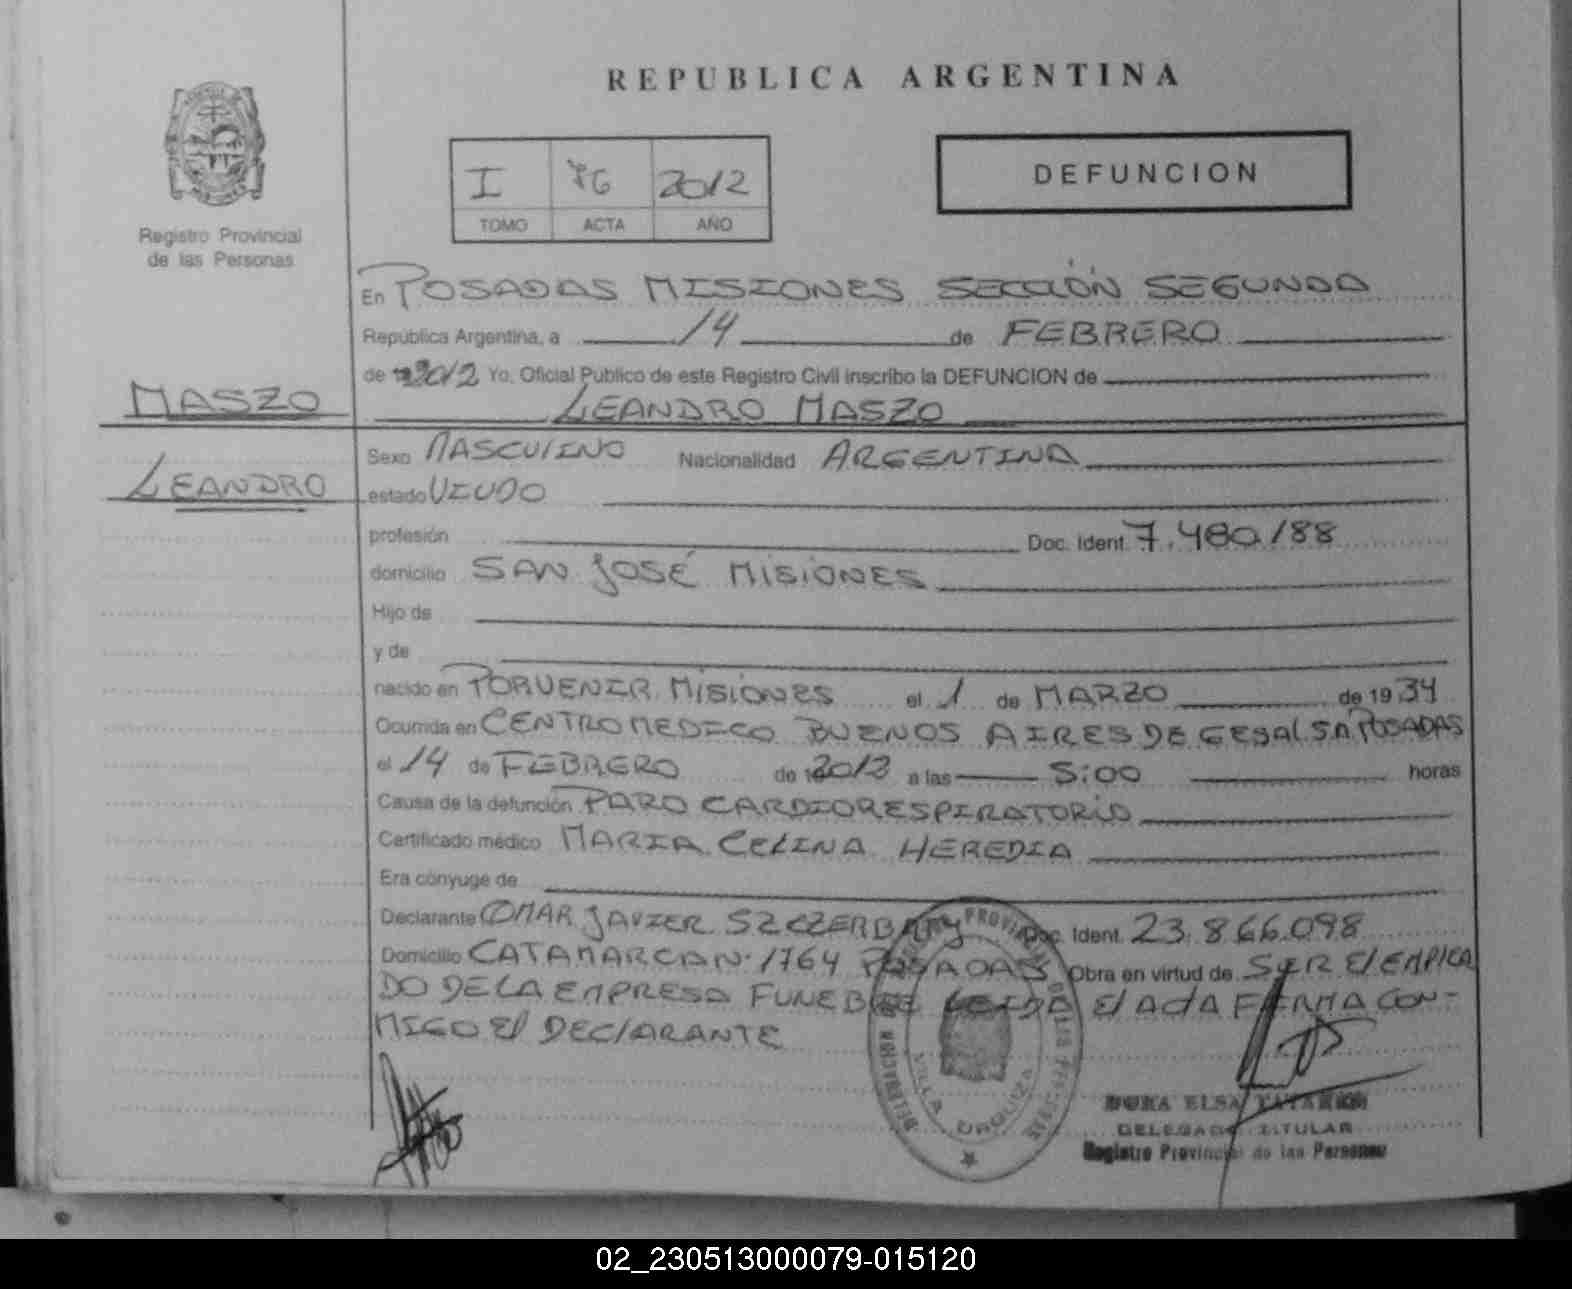 REPUBLICA ARGENTINA
I 76 2012
TOMO ACTA AÑO
DEFUNCION
Registro Provincial
de las Personas
En POSADAS MISIONES SECCIÓN SEGUNDA
República Argentina, a 14 de FEBRERO
de 2012 Yo, Oficial Público de este Registro Civil inscribo la DEFUNCION de
MASZO
LEANDRO MASZO
Sexo MASCULINO Nacionalidad ARGENTINA
LEANDRO
estado VIUDO
profesión Doc. Ident. 7.480.188
domicilio SAN JOSÉ MISIONES
Hijo de
y de
nacido en PORVENIR MISIONES el 1 de MARZO de 1934
Ocurrida en CENTRO MEDICO BUENOS AIRES DE GESAL S.A POSADAS
el 14 de FEBRERO de 2012 a las 5:00 horas
Causa de la defunción PARO CARDIORESPIRATORIO
Certificado médico MARIA CELINA HEREDIA
Era cónyuge de
Declarante OMAR JAVIER SZCZERBATY Doc. Ident. 23.866.098
Domicilio CATAMARCA N· 1764 POSADAS Obra en virtud de SER El EMPLEA
DO DE LA EMPRESA FUNEBRE LEIDA El ACTA FIRMA CON-
MIGO El DEClARANTE
VILLA URQUIZA
DORA ELSA
DELEGADO TITULAR
Registro Provincial de las Personas
02_230513000079-015120